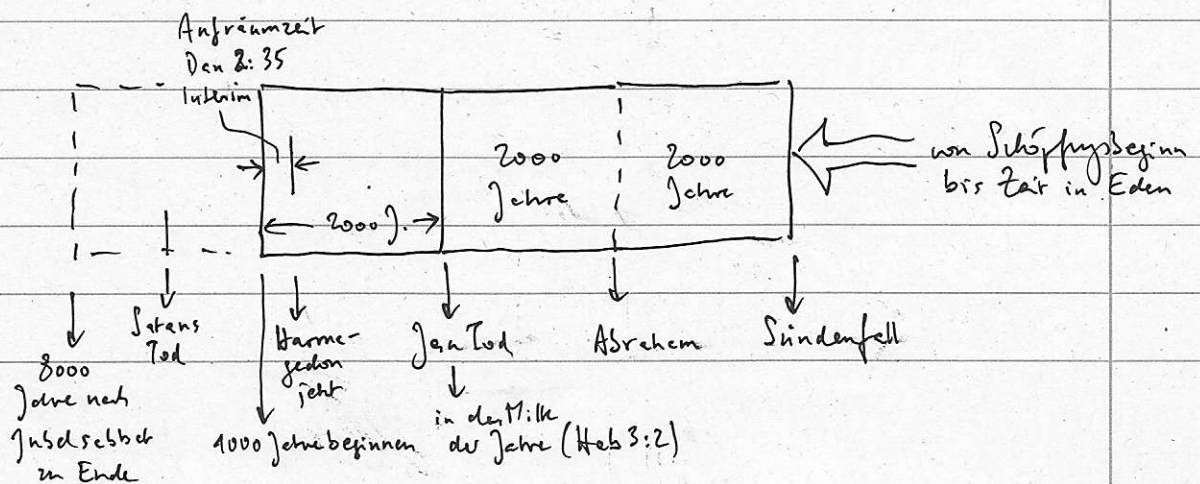 Aufräumzeit
Dan 2:35
Interim
2000
Jahre
2000
Jahre
von Schöpfungsbeginn
bis Zeit in Eden
2000 J.
8000
Jahre nach
Jubelsabbat
zu Ende
Satans
Tod
Harma-
gedon
jetzt
1000 Jahre beginnen
Jesu Tod
in der Mitte
der Jahre (Hab 3:2)
Abraham
Sündenfall